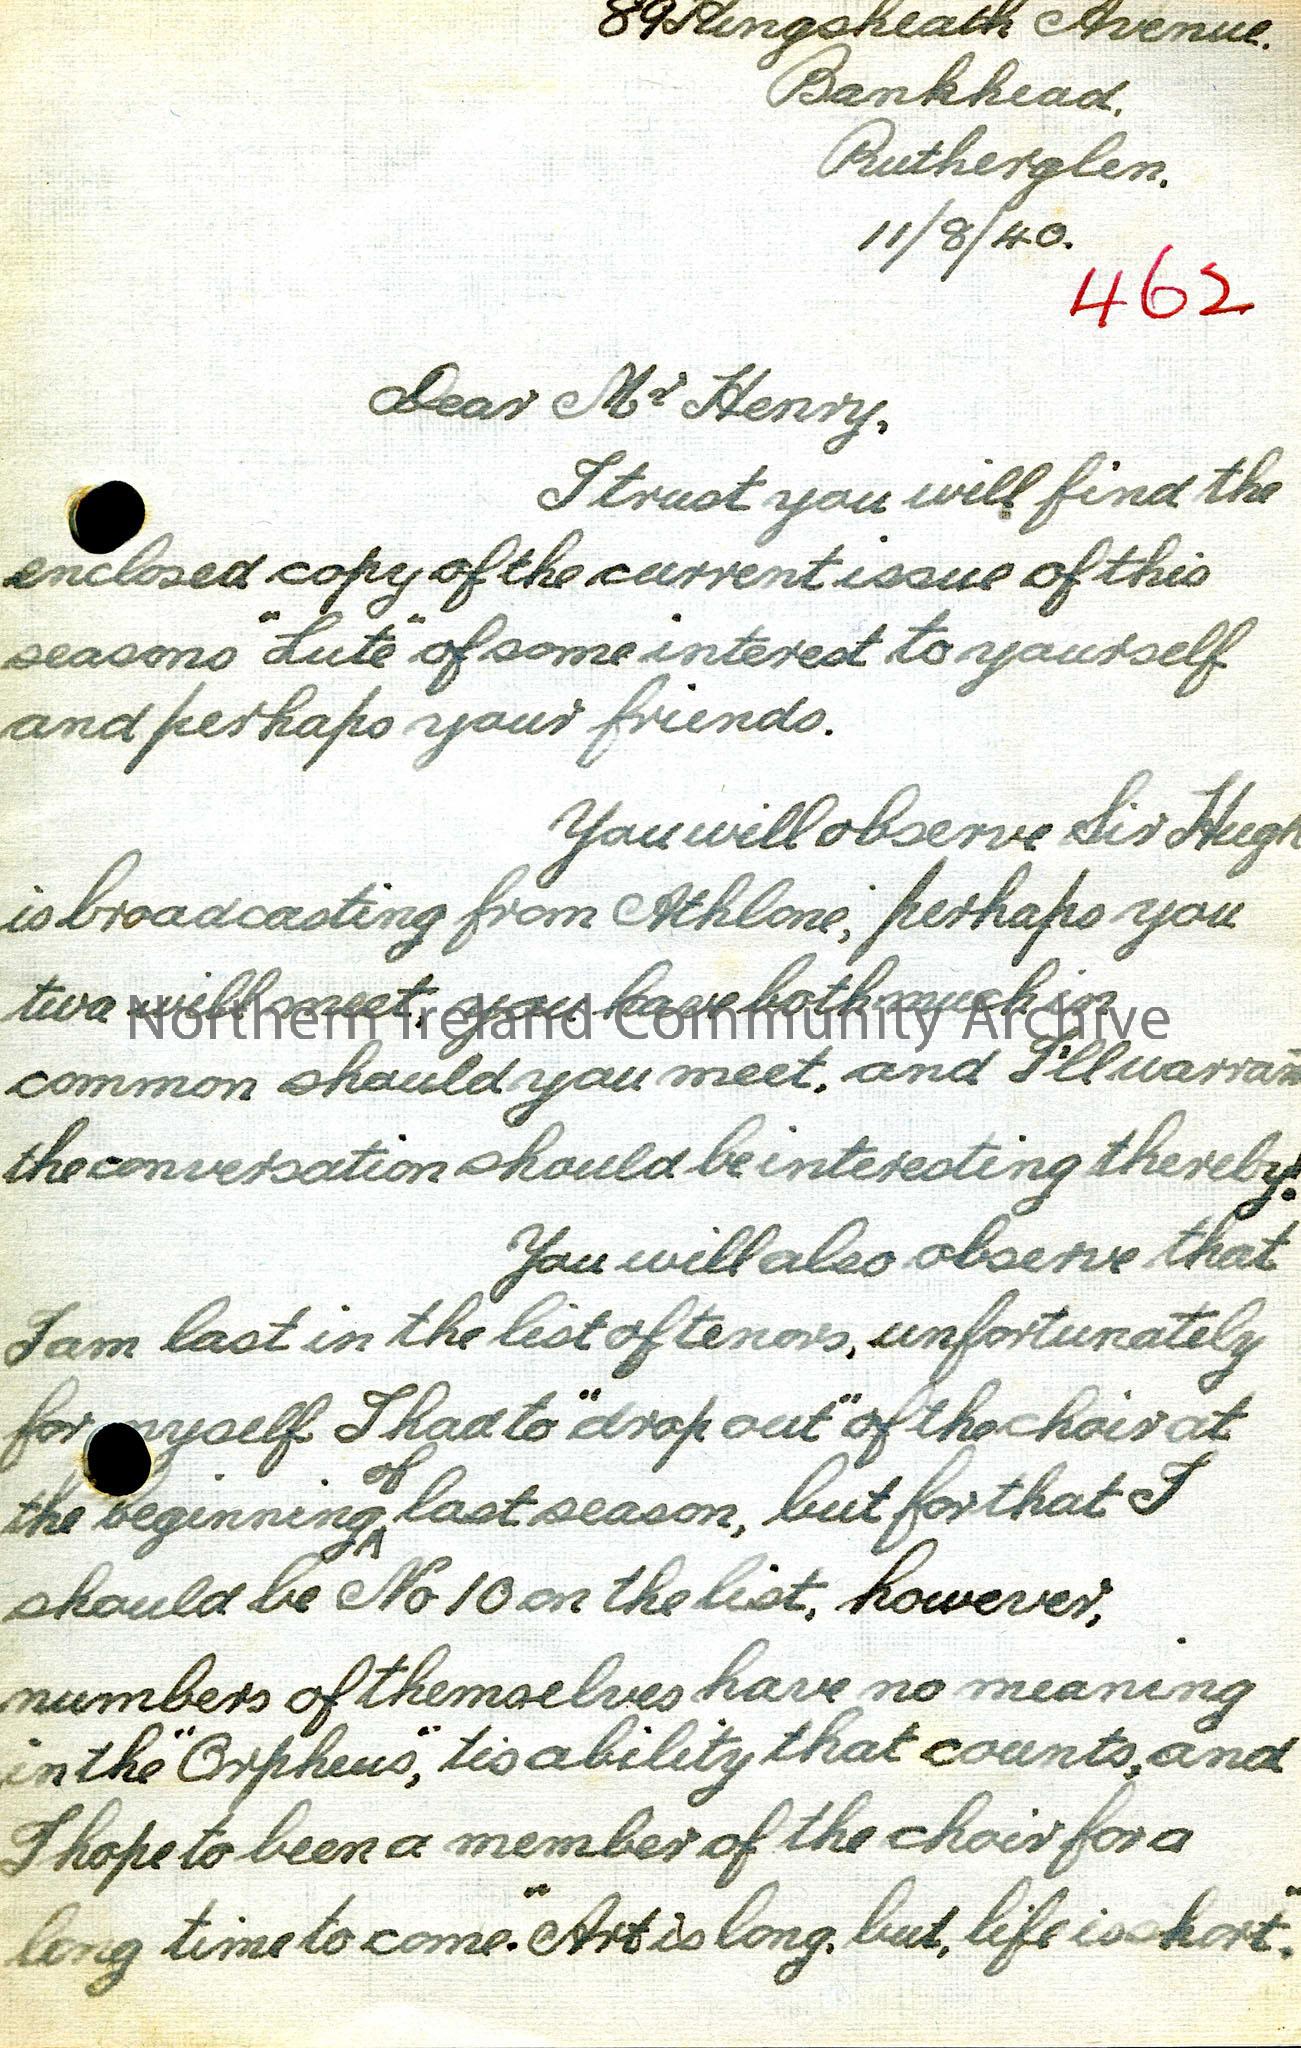 89 Kingsheath Avenue.
Bankhead.
Rutherglen.
11/8/40.
462
Dear Mr Henry,
I trust you will find the
enclosed copy of the current issue of this
seasons "Lute" of some interest to yourself
and perhaps your friends.
You will observe Sir Hugh
is broadcasting from Athlone, perhaps you
two will meet, you have both much in
Northern Ireland Community Archive
common should you meet, and I'll warran
the conversation should be interesting thereby.
You will also observe that
I am last in the list of tenors, unfortunately
for myself I had to "drop out" of the choir at
the beginning of last season, but for that I
should be No 10 on the list, however,
numbers of themselves have no meaning
in the "Orpheus", tis ability that counts, and
I hope to been a member of the choir for a
long time to come. "Art is long, but, life is short."